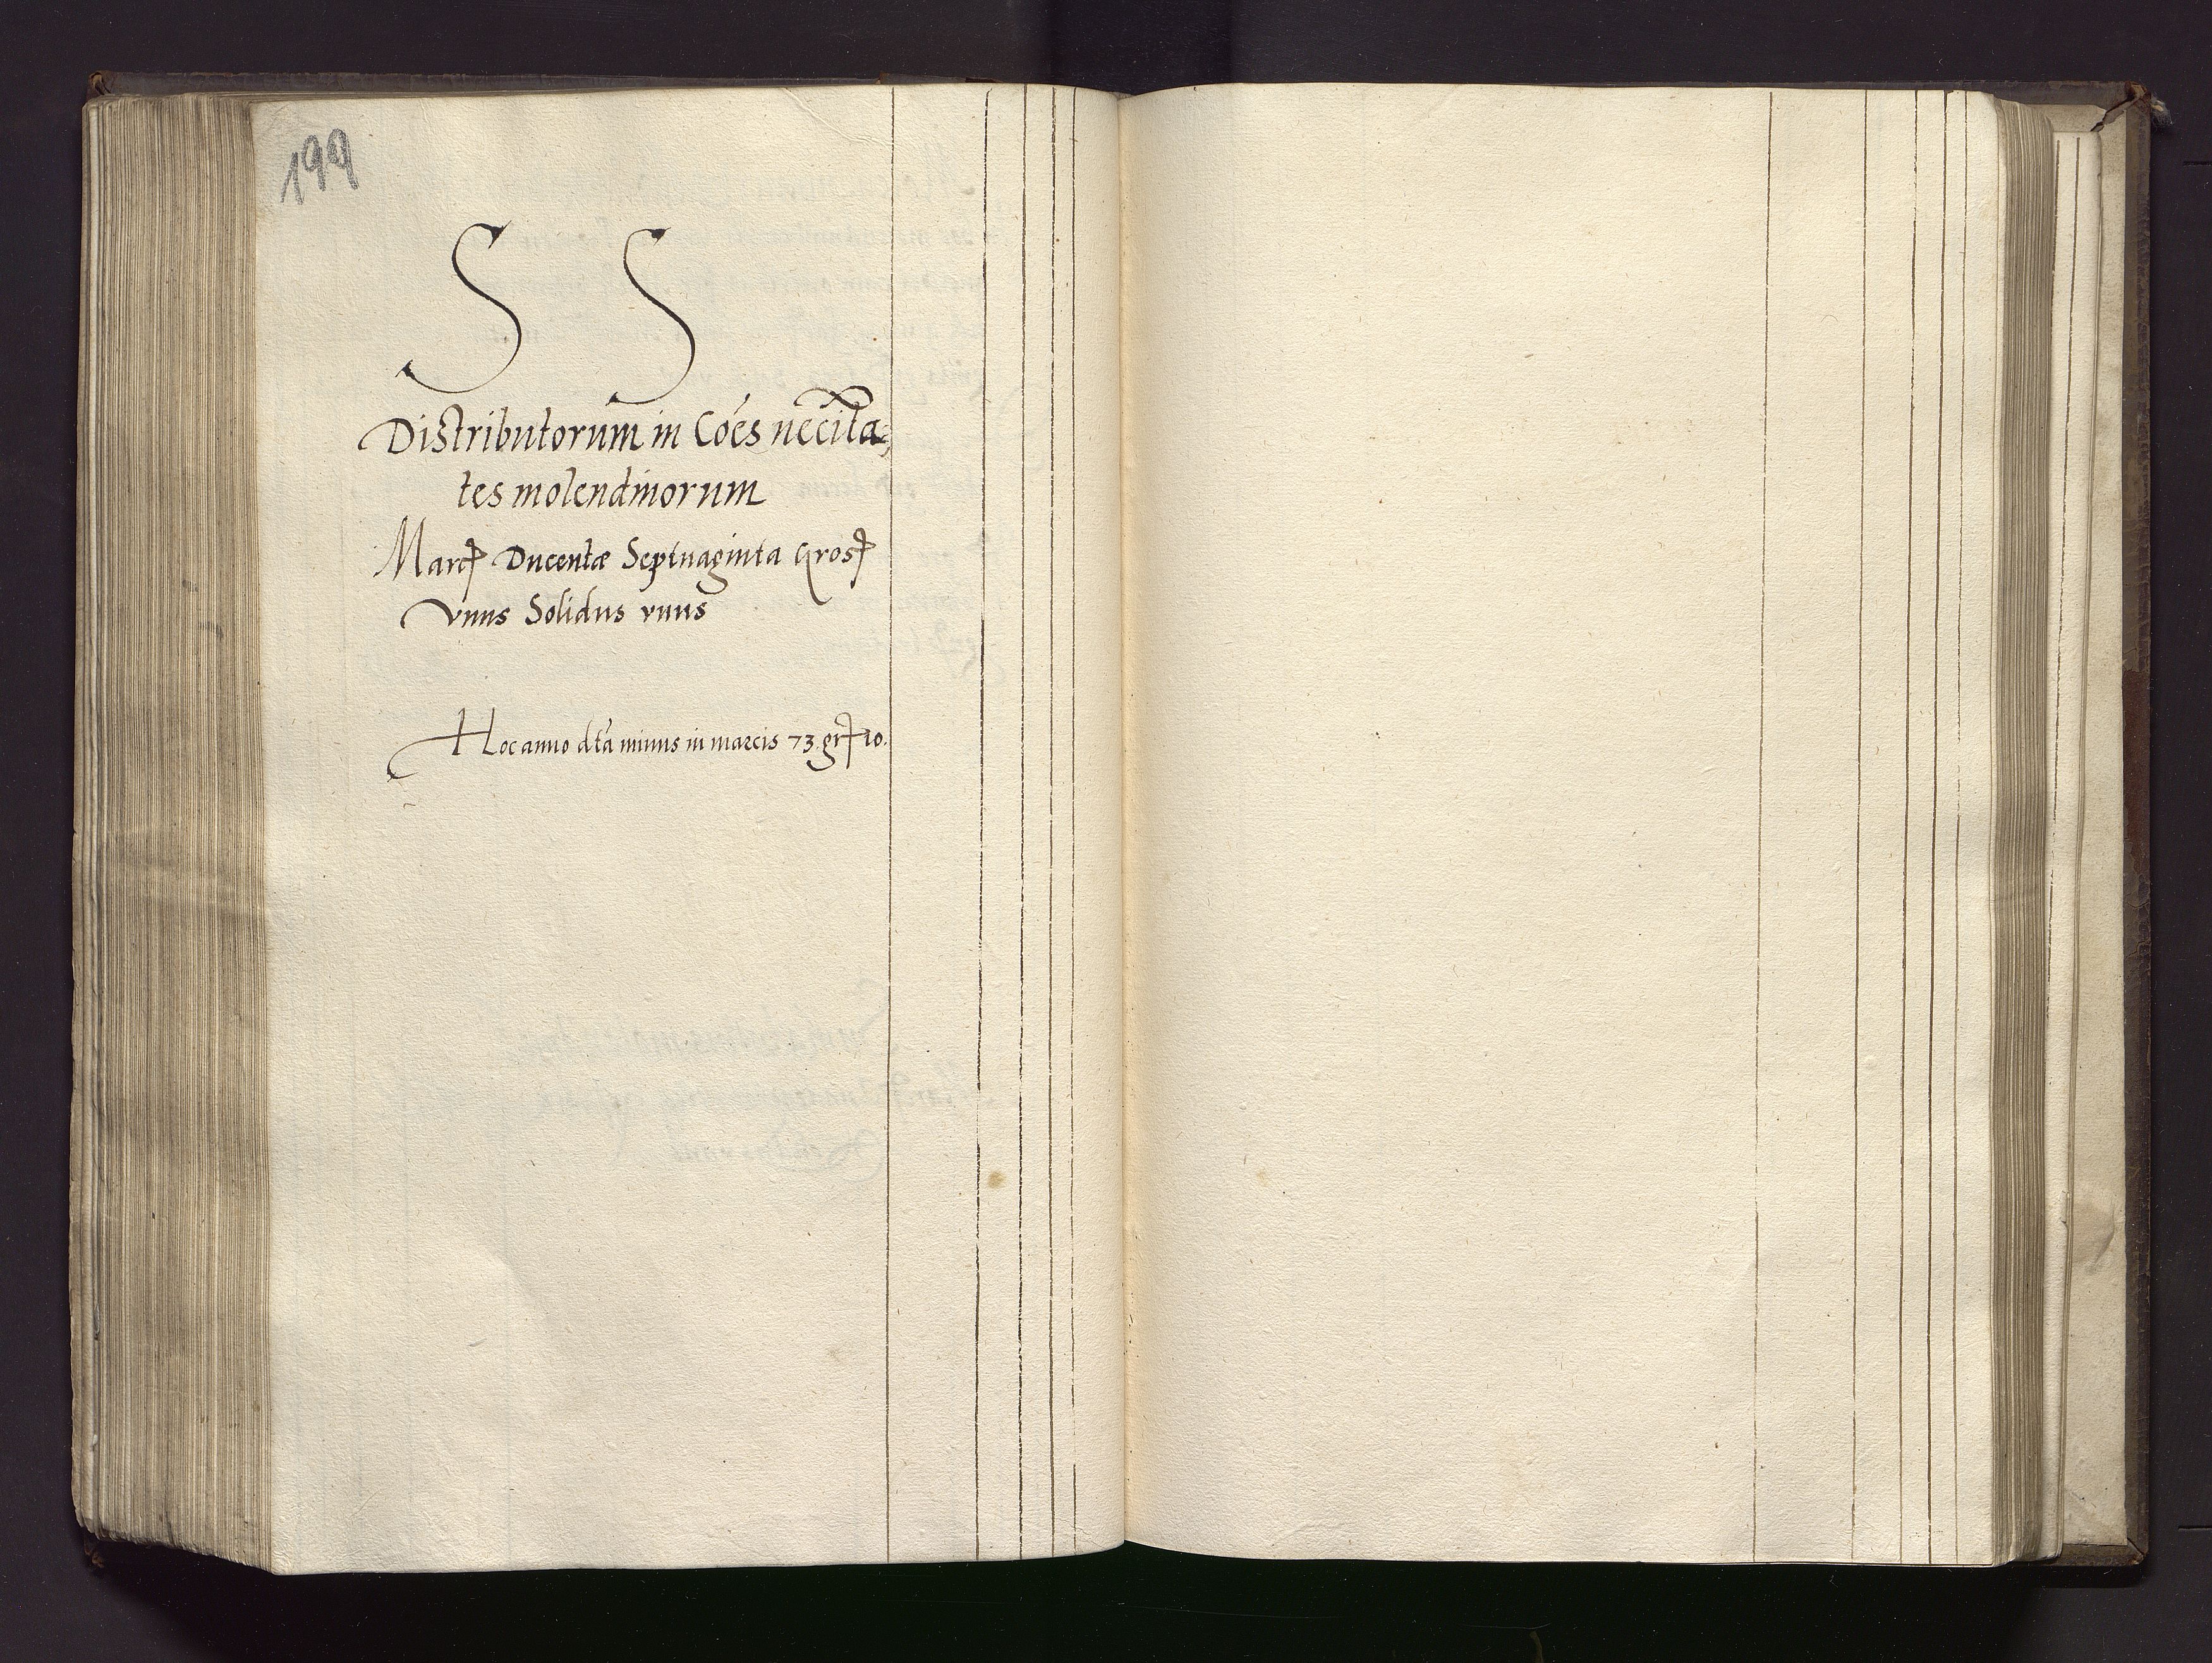 199
S S
Distributorum in Cões necita-
tes molendinorum
Marcę Ducentæ Septuaginta Gros
Vnus Solidus vnus
Hoc anno dta minus in marcis 73 gr 10.